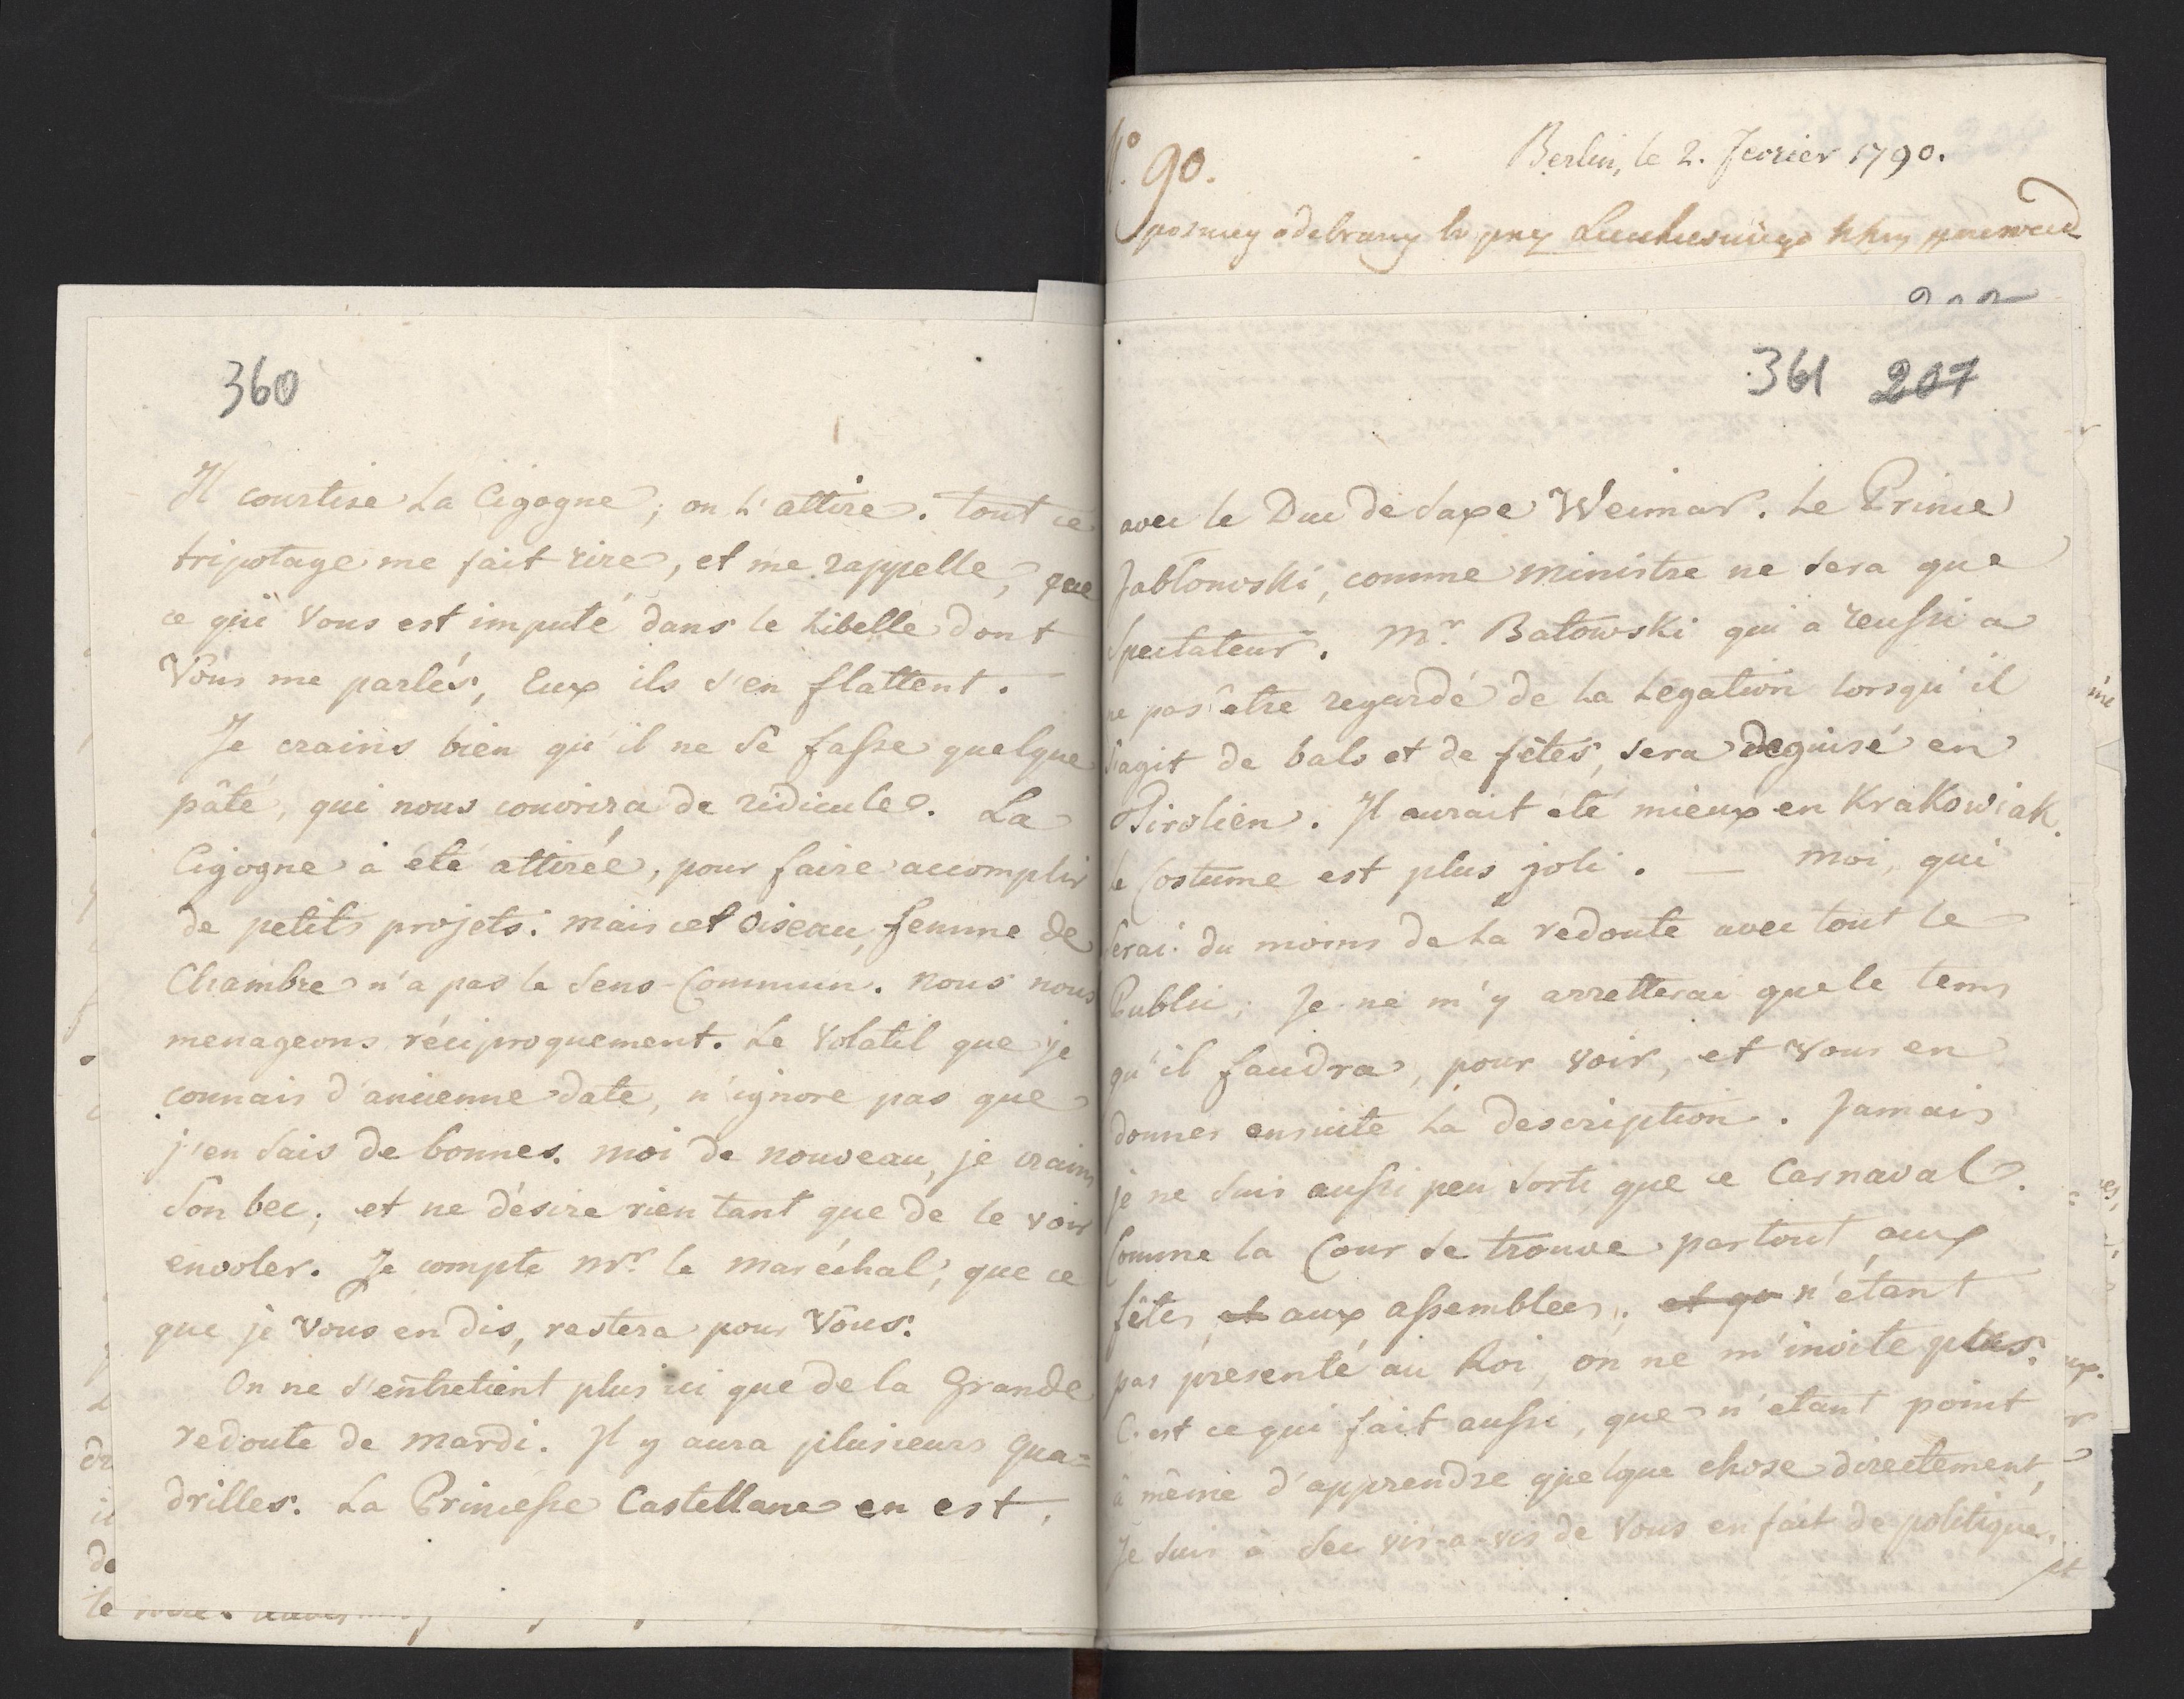 360
Il courtise La Cigogne; on L'attire. tout ce
tripotage me fait rire, et me rappelle, que
ce qui Vous est imputé dans le Libelle dont
Vous me parlés, Eux ils s'en flattent.
Je crains bien qu'il ne se fasse quelque
pâté, qui nous couvrira de ridicule. La
Cigogne a été attirée, pour faire accomplir
de petits projets: mais cet Oiseau, femme de
Chambre n'a pas le sens-Commun. nous nous
menageons réciproquement. Le Volatil que je
connais d'ancienne date, n'ignore pas que
j'en sais de bonnes. moi de nouveau, je crains
Son bec; et ne désire rien tant que de le voir
envoler. Je compte Mr. le maréchal, que ce
que je Vous en dis, restera pour Vous.
On ne s'entretient plus ici que de la Grande
redoute de mardi. Il y aura plusieurs Qua=
drilles. La Princesse Castellane en est,
No. 90.
Berlin, le 2. Fevrier 1790.
odebrany
361 207
avec le Duc de Saxe Weimar. Le Prince
Jablonowski, comme ministre ne sera que
Spectateur. Mr. Batowski qui a reussi a
ne pas être regardé de la Legation lorsqu'il
s'agit de bals et de fêtes, sera deguisé en
Tirolien. Il aurait été mieux en Krakowiak.
le Costume est plus joli. — moi, qui
serai du moins de la redoute avec tout le
Public; Je ne m'y arretterai que le tems
qu'il faudra, pour voir, et Vous en
donner ensuite la description. Jamais
je ne suis aussi peu sorti que ce Carnaval.
Comme la Cour se trouve partout aux
fêtes, et aux assemblées, et qu n'étant
pas presenté au Roi, on ne m'invite plus.
C'est ce qui fait aussi, que n'étant point
à même d'apprendre quelque chose directement,
Je suis à sec vis-a-vis de Vous en fait de politique.
et